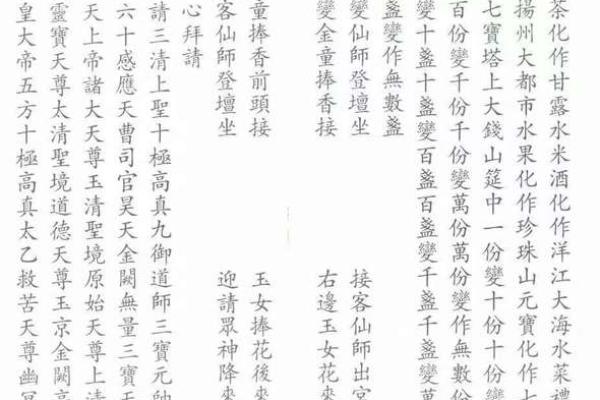 茶化作甘露水米酒化作洋江大海水菜禮
揚州大都市水果化作珍珠山元寶化作七
七寶塔上大錢山筵中一份變十份十份
百份變千份千份變萬份萬份變作無數份
變十盞十盞變百盞百盞變千盞千盞變萬
盞變作無數盞
變仙師登壇坐 接客仙師出宮
變金童捧香接 右邊玉女花來
童捧香前頭接 玉女捧花後來
客仙師登壇坐 迎請眾神降來
心拜請
請三清上聖十極高真九御道師三寶元帥
六十感應天曹司官昊天金闕無量三寶天
天上帝諸大天尊玉清聖境原始天尊上清
靈寶天尊太清聖境道德天尊玉京金闕高
皇大帝五方十極高真太乙救苦天尊幽冥